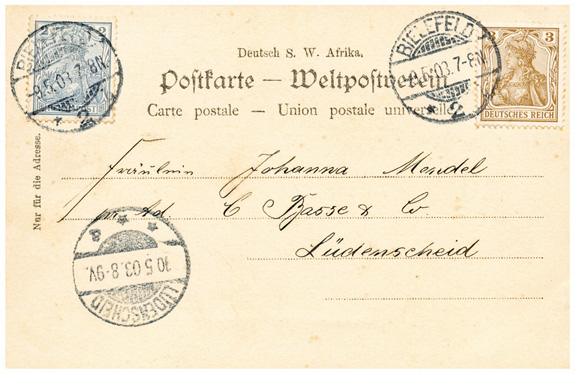 2 2
BIELEFELD
9.5.03.7-8N.
* 2
BIELEFELD
9.5.03.7-8N.
* 2
3 3
DEUTSCHES REICH
Deutsch S. W. Afrika.
Postkarte — Weltpostverein
Carte postale — Union postale universelle
Nur für die Adresse.
Fräulein Johanna Mendel
pr. Ad. C Basse & Co.
Lüdenscheid
* * a
10.5.03.8-9V.
LÜDENSCHEID